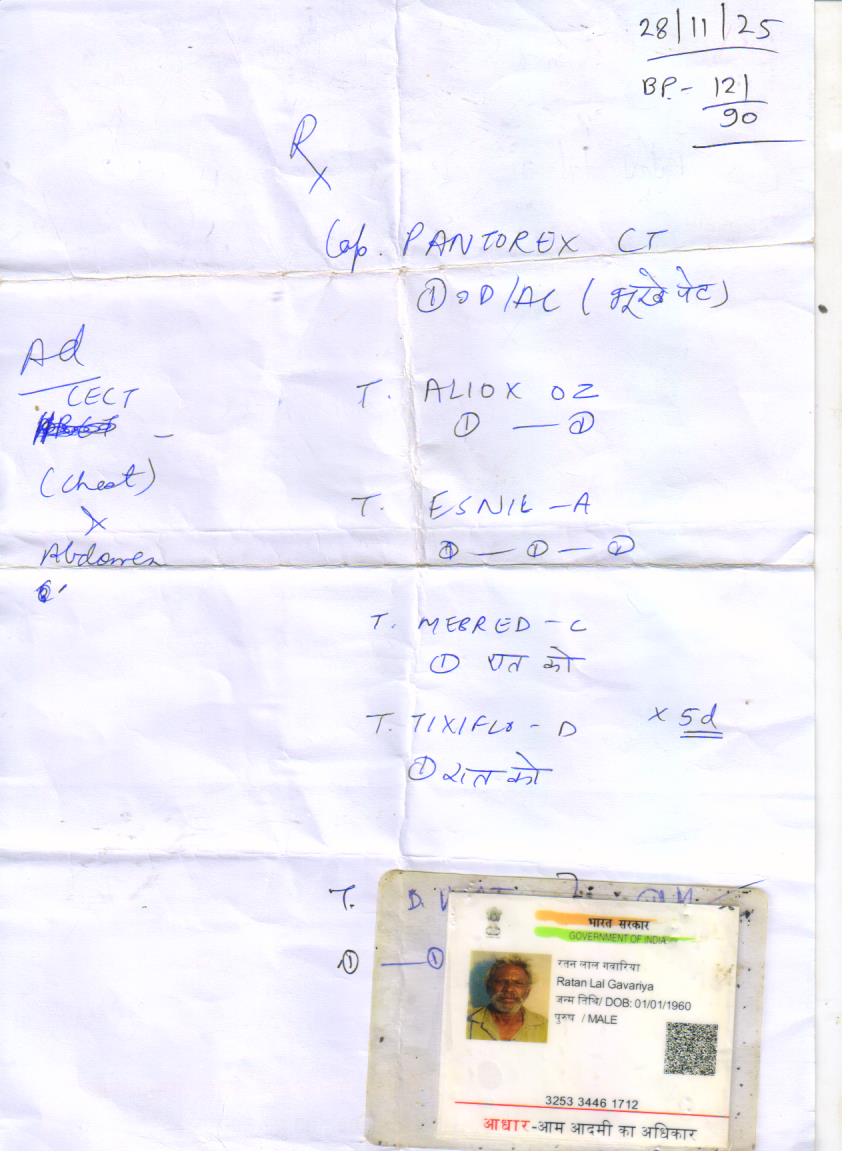 28/11/25
BP.- 121
90
Rx
Cap. PANTOREX CT
① OD/AC (भूखे पेट)
Ad
CECT
(Chest)
Abdomen
T. ALIOX OZ
① — ①
T. ESNIL-A
① — ① — ①
T. MEBRED-C
① रात को
T. TIXIFLO-D x 5d
① रात को
T.
① — ①
भारत सरकार
GOVERNMENT OF INDIA
रतन लाल गवारिया
Ratan Lal Gavariya
जन्म तिथि/ DOB: 01/01/1960
पुरुष / MALE
3253 3446 1712
आधार-आम आदमी का अधिकार